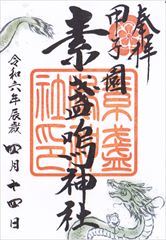 奉拝
甲子園
素盞嗚神社
素盞
社印
令和六年辰歳
四月十四日